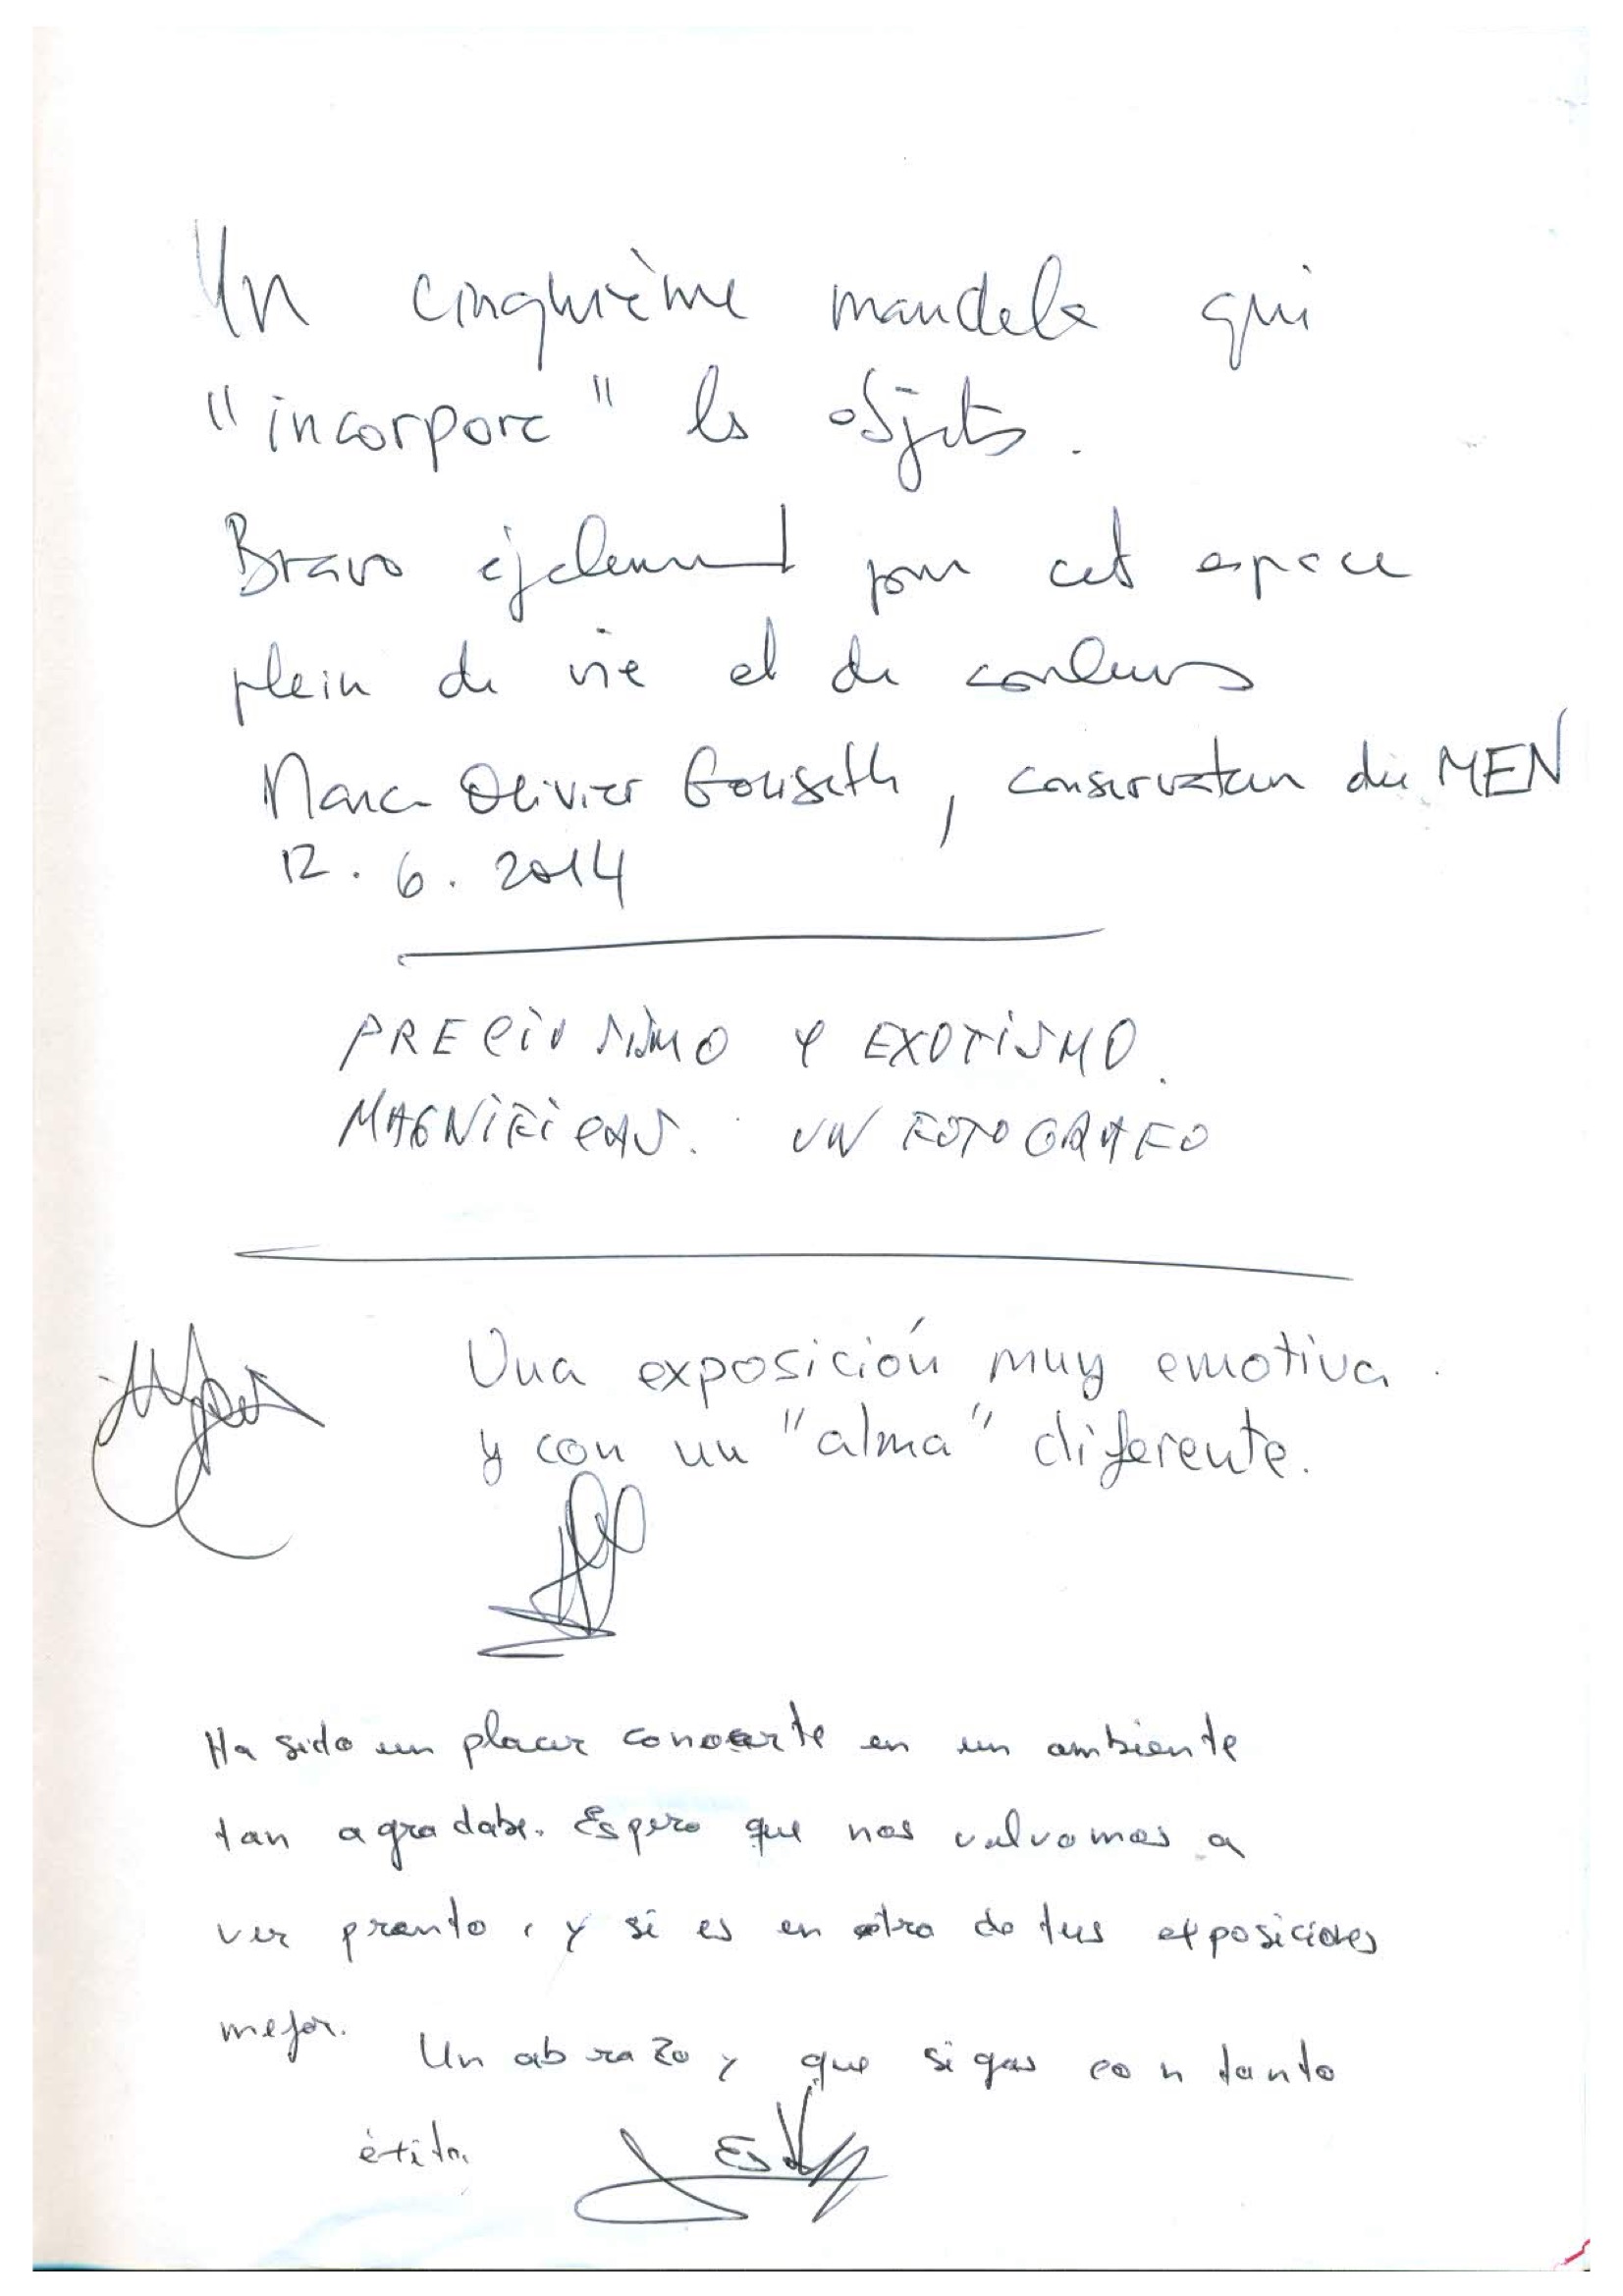 Un cinquième mandala qui
"incorpore" les objets.
Bravo également pour cet espace
plein de vie et de couleurs
Marc Olivier Gonseth, conservateur du MEN
12.6.2014
PRECIOSISIMO Y EXOTISMO.
MAGNIFICAS. UN FOTOGRAFO
Una exposición muy emotiva.
y con un "alma" diferente.
Ha sido un placer conocerte en un ambiente
tan agradabe. Espero que nos volvamos a
ver pronto, y si es en otra de tus exposiciones
mejor.
Un abrazo y que sigas con tanto
éxito.